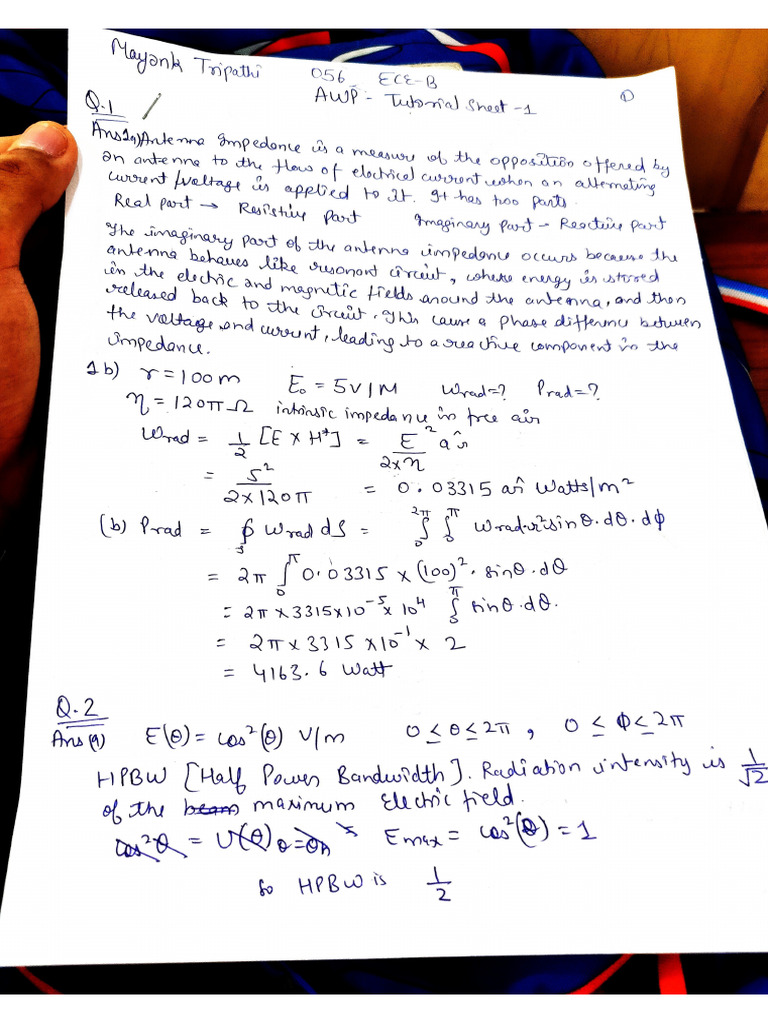 Mayank Tripathi 056 ECE-B
AWP - Tutorial Sheet -1 1
Q.1
Ans 1a) Antenna Impedance is a measure of the opposition offered by
an antenna to the flow of electrical current when an alternating
current/voltage is applied to it. It has two parts.
Real part → Resistive part Imaginary part - Reactive part
The imaginary part of the antenna impedance occurs because the
antenna behaves like resonant circuit, where energy is stored
in the electric and magnetic fields around the antenna, and then
released back to the circuit. This cause a phase difference between
the voltage and current, leading to a reactive component in the
impedance.
1b) r = 100 m E₀ = 5V/M Wrad=? Prad=?
η = 120π Ω intrinsic impedance in free air
Wrad = 1/2 [E × H*] = E²/2×η âr
= 5²/2×120π = 0.03315 ar̂ Watts/m²
(b) Prad = ∮s Wrad ds = ∫₀^2π ∫₀^π Wrad.r² sinθ.dθ.dϕ
= 2π ∫₀^π 0.03315 × (100)². sinθ.dθ
= 2π × 3315×10⁻⁵ × 10⁴ ∫₀^π sinθ.dθ.
= 2π × 3315 × 10⁻¹ × 2
= 4163.6 Watt
Q.2
Ans (a) E(θ) = cos²(θ) V/m 0 ≤ θ ≤ 2π , 0 ≤ ϕ ≤ 2π
HPBW [Half Power Bandwidth]. Radiation intensity is 1/√2
of the maximum Electric field.
cos²θ = U(θ) θ=θh Emax = cos²(θ) = 1
So HPBW is 1/2